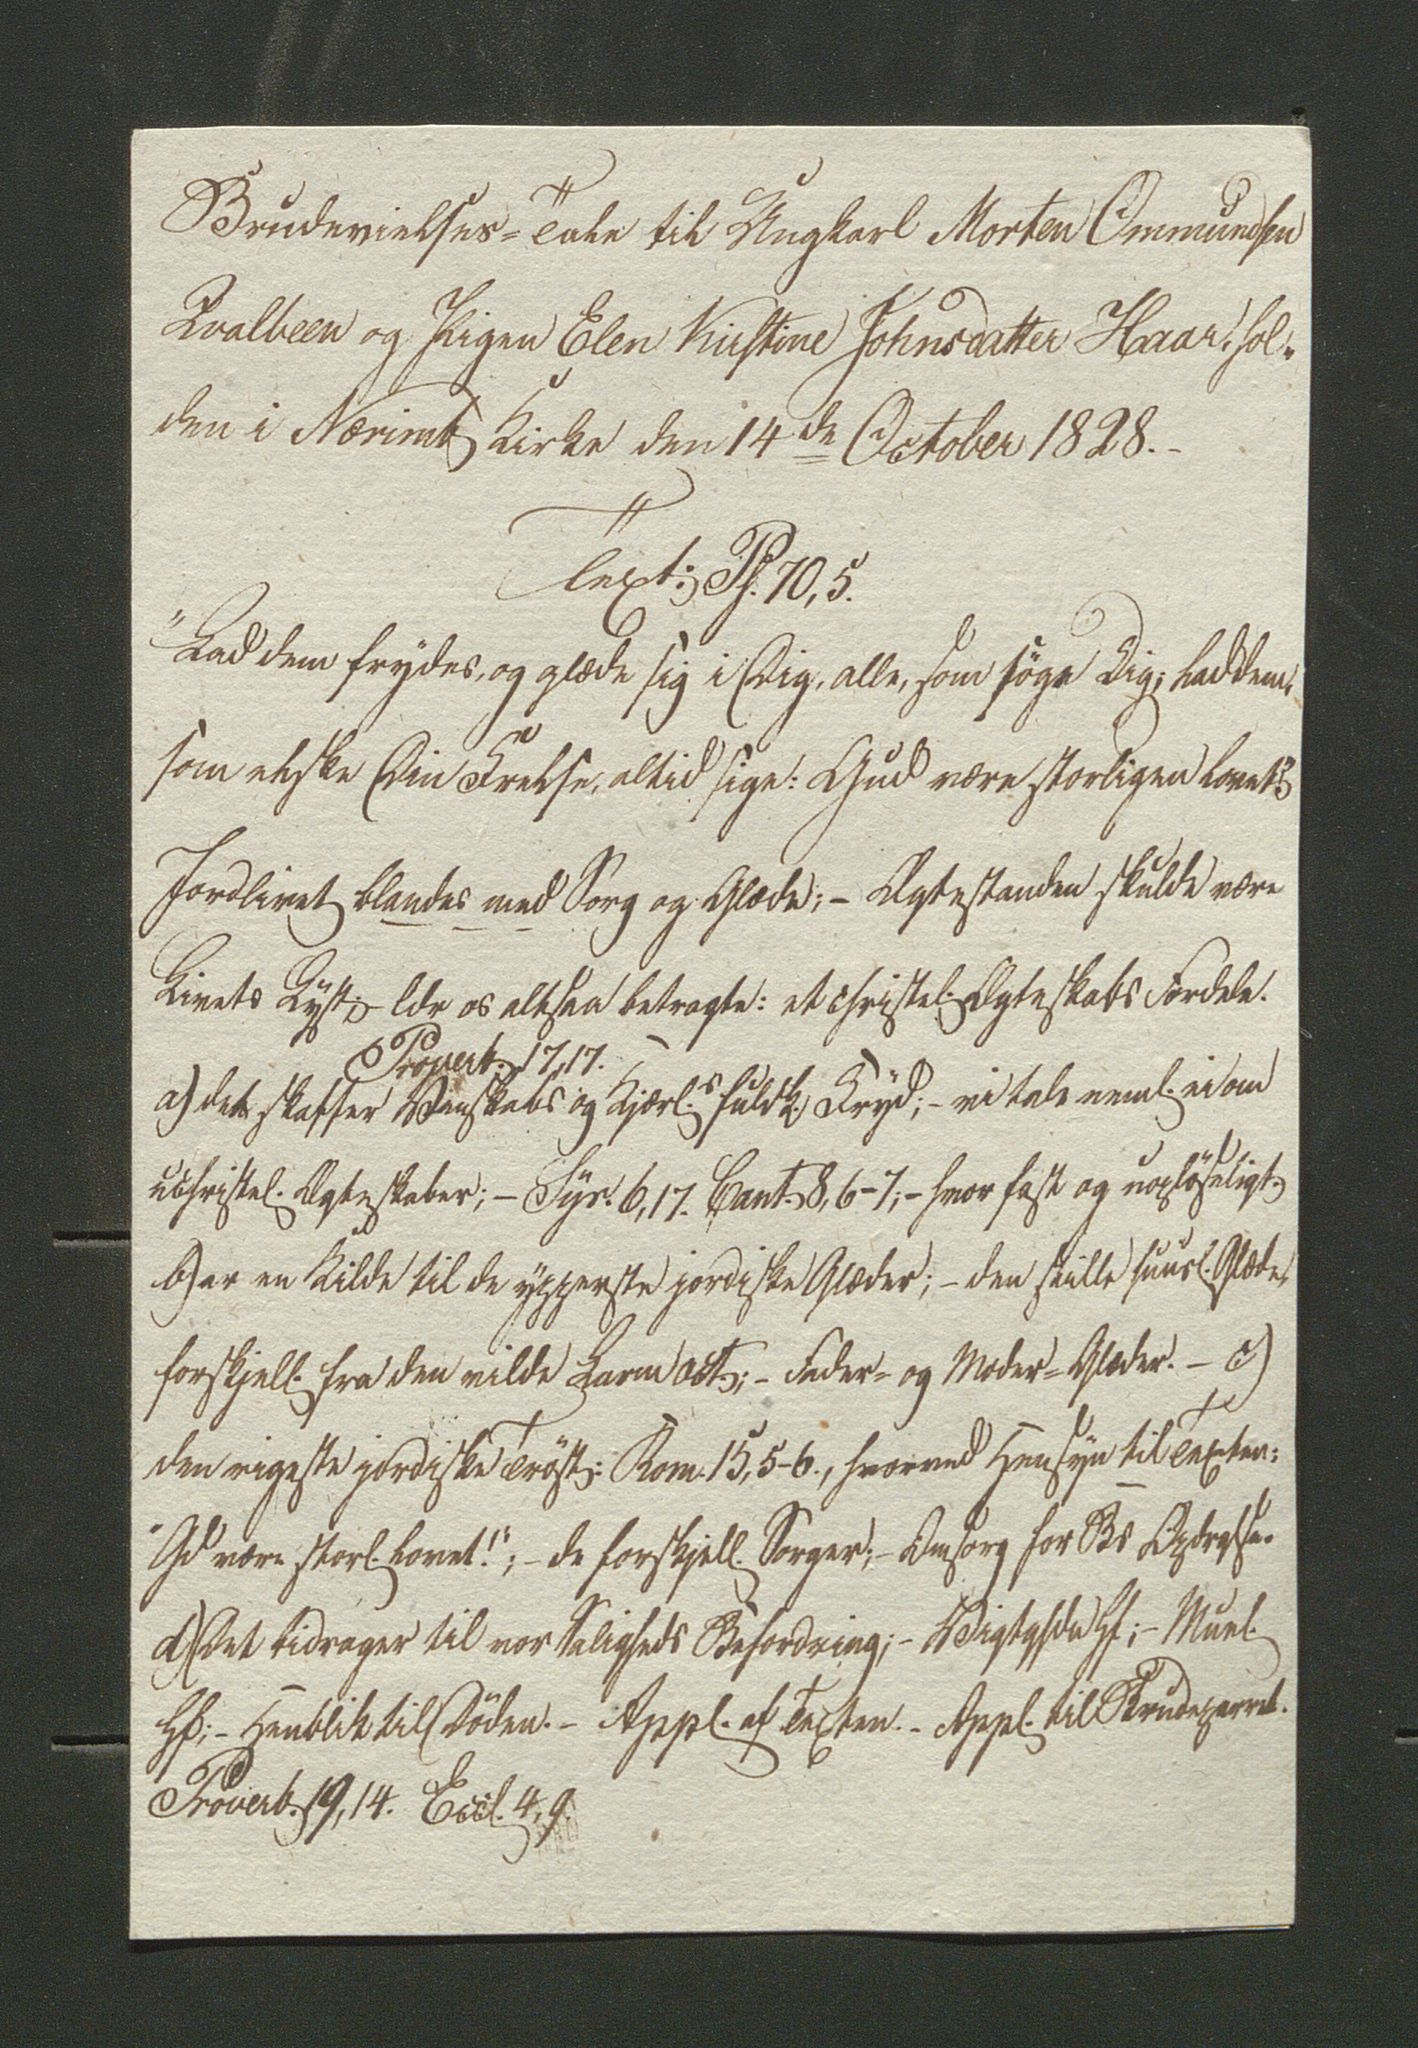 Brudevielses-Tale til Ungkarl Morten Ommundsen
Qvalbeen og Pigen Elen Kirstine Johnsdatter Haar, hol-
den i Nærimb Kirke den 14de October 1828.-
Text: Ps. 70, 5.
"Lad dem frydes, og glæde sig i Dig, alle, som söge Dig; lad dem,
som elske Din Frelse, altid sige: Gud være storligen lovet!"
Jordlivet blandes med Sorg og Glæde; - Ægtestanden skulde være
Livets Lyst; - ldr os altsaa betragte: et christel. Ægteskabs Fordele.
Proverb. 17,17.
a) det skaffer Venskabs og Kjærl.s fuldk. Fryd; - vi tale neml. ei om
uchristel. Ægteskaber; - Syr. 6,17. Cant. 8, 6-7; - hvor fast og uoplöseligt.
b) er en Kilde til de ypperste jordiske Glæder; - den stille huusl. Glæde,
forskjell. fra den vilde Larm oct; - Fader- og Moder-Glæder. - c)
den rigeste jordiske Tröst: Rom. 15, 5-6., hvorved Hensyn til Texten:
"Gd være storl. lovet!"; - de forskjell. Sorger; - Omsorg for Bs Opdrglse.
d) Det bidrager til vor Saligheds Befordring; -
Hf; - Henblik til Döden. - Appl. af Texten. - Appl. til Brudeparret.
Proverb. 19, 14. Eccl. 4, 9.